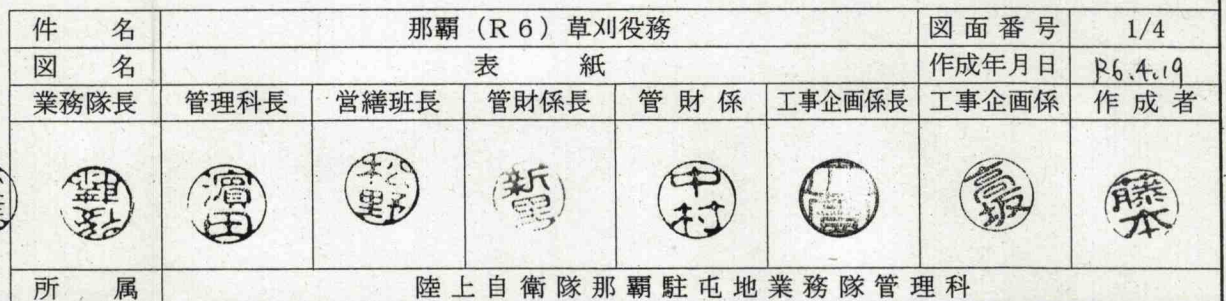 件名 那覇（R6）草刈役務 図面番号 1/4
図名 表紙 作成年月日 R6.4.19
業務隊長 管理科長 営繕班長 管財係長 管財係 工事企画係長 工事企画係 作成者
濱田 松野 新里 中村 高坂 藤本
所属 陸上自衛隊那覇駐屯地業務隊管理科